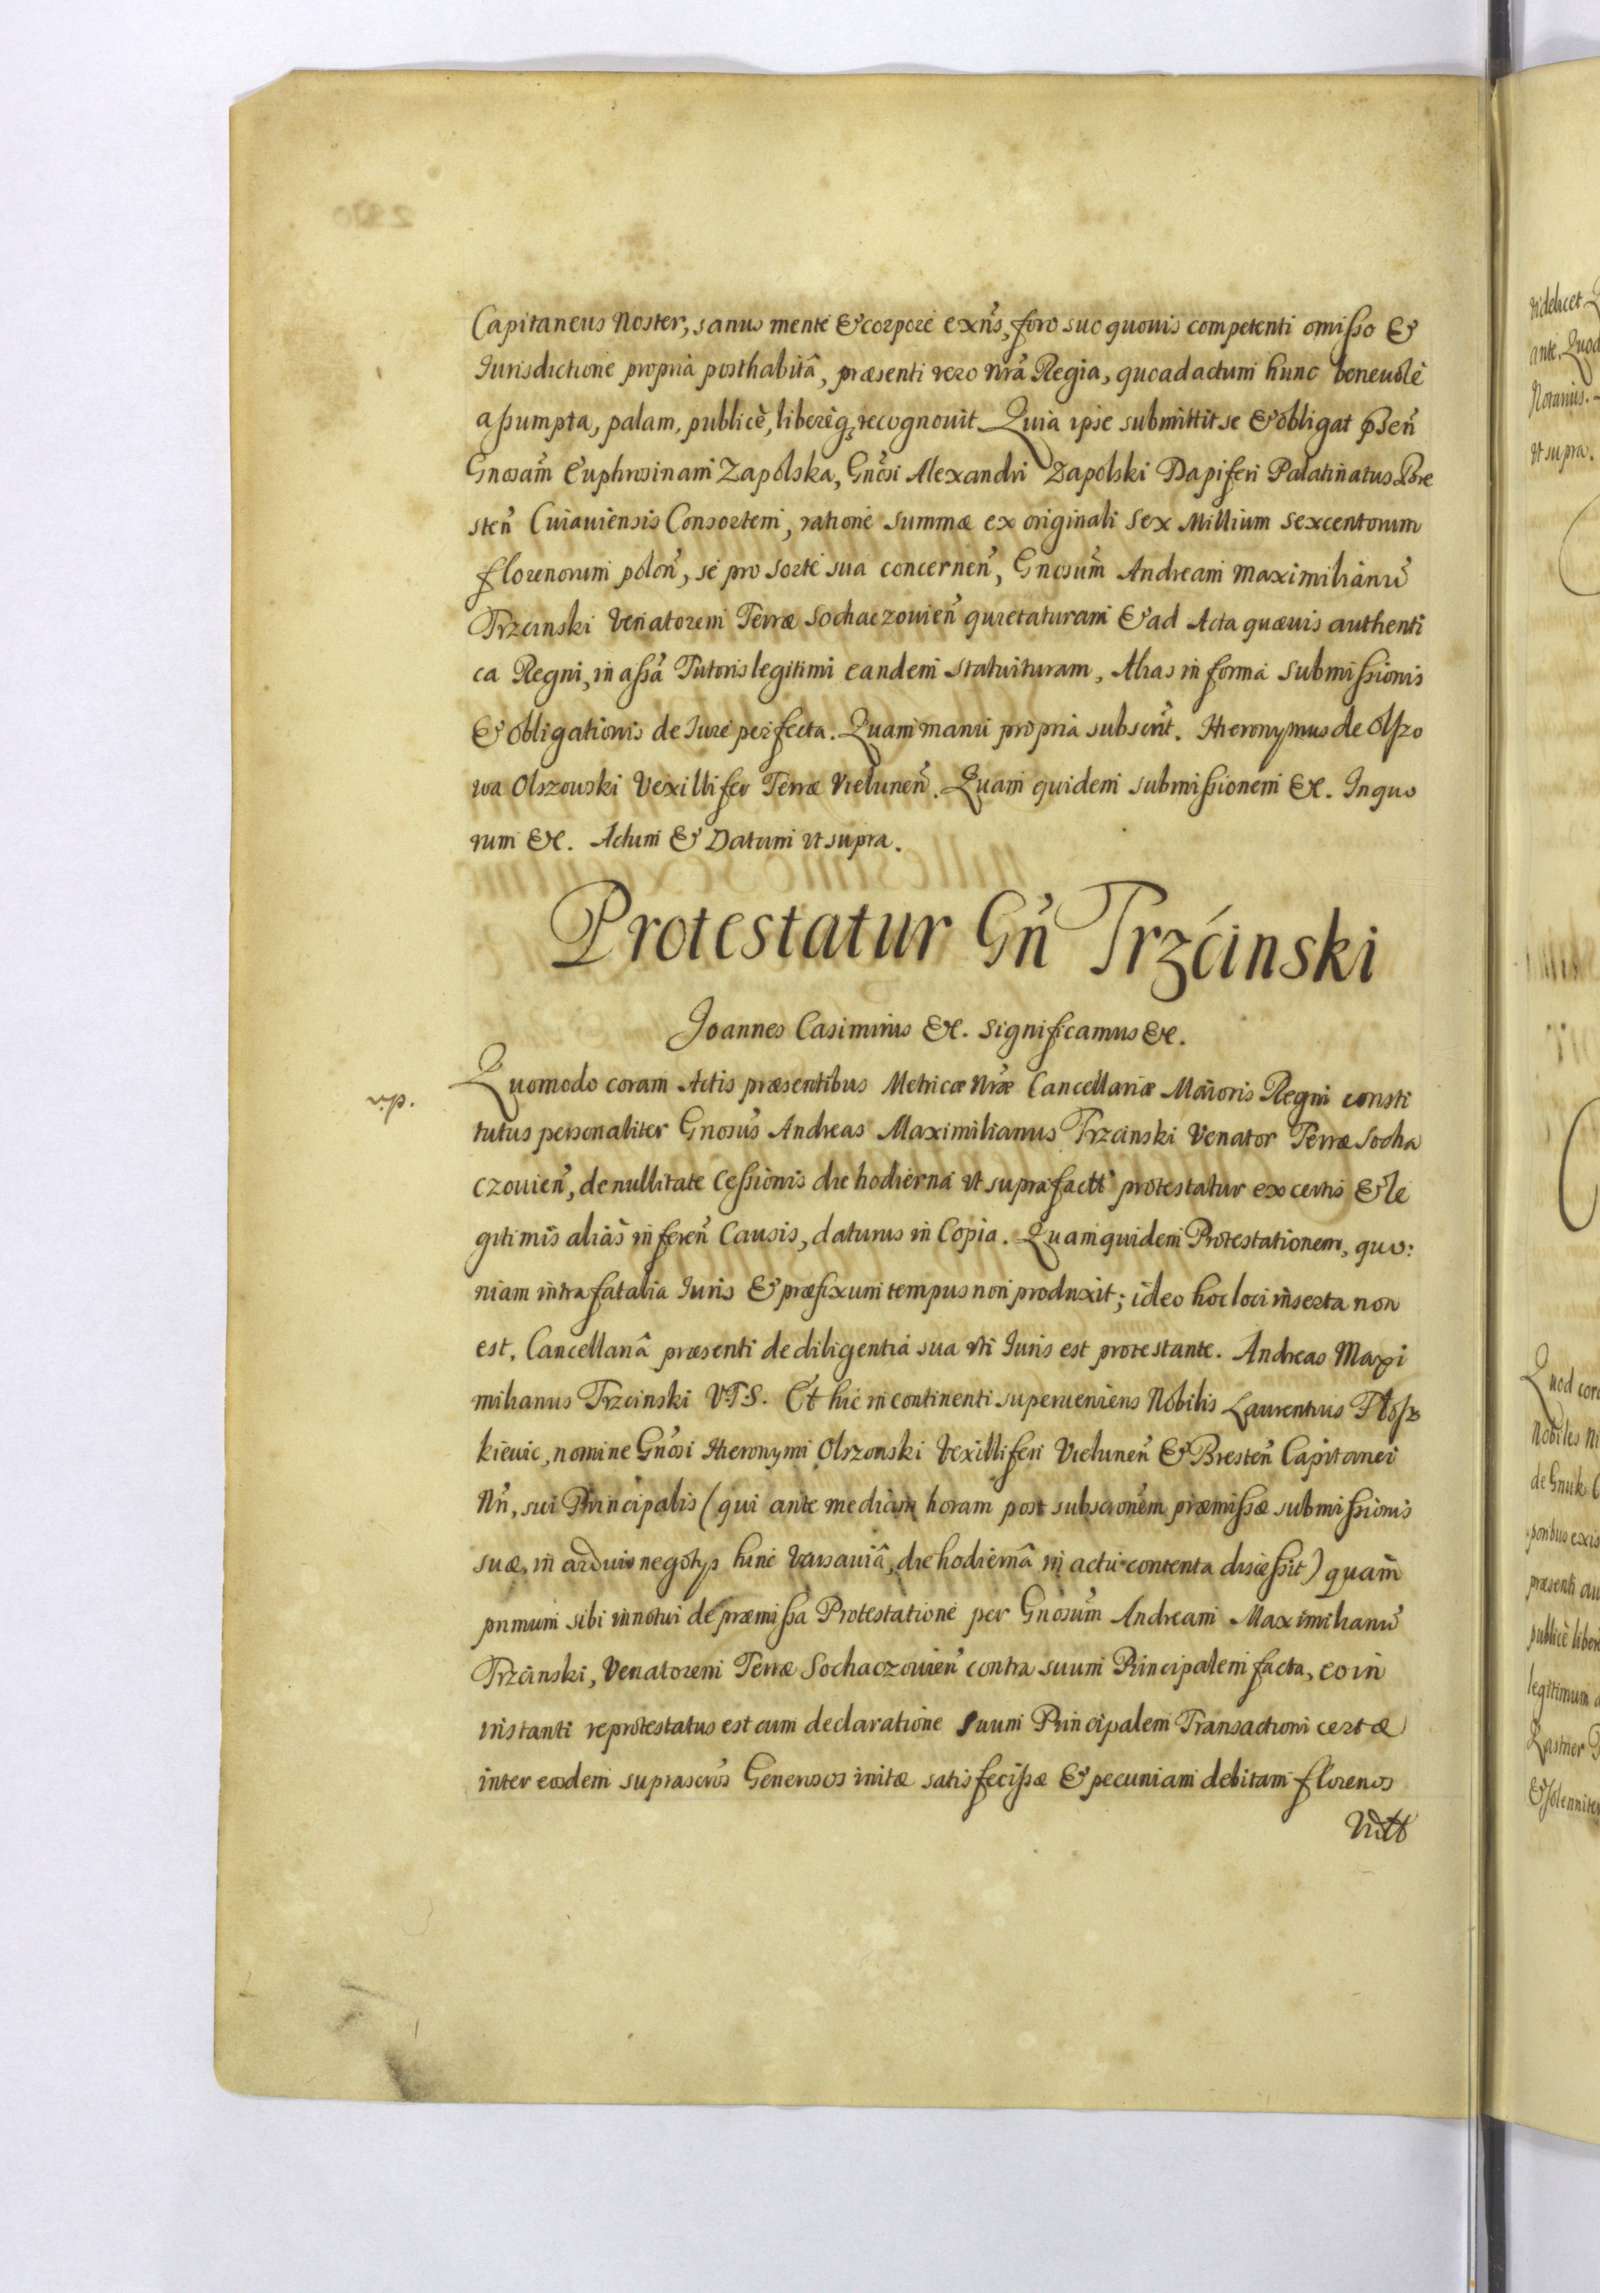 Capitaneus Noster, sanus mente & corpore exn̄s, foro suo quouis competenti omisso &
Iurisdictione propria posthabitâ, præsenti vero Nrā Regia, quoad actum hunc beneuolè
assumpta, palam, publicè, liberéq, recognouit Quia ipse submittit se & obligat psen̄
Gnosam̄ Euphrosinam Zapolska, Gnōsi Alexandri Zapolski Dapiferi Palatinatus Bre
sten̄ Cuiauiensis Consortem, ratione summæ ex originali Sex Millium Sexcentorum
florenorum polon̄, se pro sorte sua concernen̄, Gnosum̄ Andream Maximilianū
Trzcinski Venatorem Terræ Sochaczouien̄ quietaturam & ad Acta quæuis authenti
ca Regni, in assā Tutoris legitimi eandem statuituram, Alias in forma submissionis
& obligationis de Iure perfecta. Quam manu propria subscrit̄. Hieronymus de Olszo
wa Olszouski Vexillifer Terræ Vielunen̄. Quam quidem submissionem &c. In quo
rum &c. Actum & Datum vt supra.
Protestatur Gn̄ Trzćinski
Joannes Casimirus &c. Significamus &c.
Quomodo coram Actis præsentibus Metricæ Nrǣ Cancellariæ Maioris Regni consti
tutus personaliter Gnosus̄ Andreas Maximilianus Trzcinski Venator Terræ Socha
czouien̄, de nullitate Cessionis die hodierna vt supra factæ protestatur ex certis & le
gitimis aliàs inferen̄ Causis, daturus in Copia. Quam quidem Protestationem, quo:
niam intra fatalia Iuris & præfixum tempus non produxit; ideo hoc loci inserta non
est, Cancellariâ præsenti de diligentia sua vti Iuris est protestante. Andreas Maxi
milianus Trzcinski V.T.S. Et hic in continenti superueniens Nobilis Laurentius
kieuic, nomine Gnōsi Hieronymi Olszouski Vexilliferi Vielunen̄ & Bresten̄ Capitanei
Nn̄, sui Principalis (qui ante mediam horam post subscionem̄ præmissæ submissionis
suæ, in arduis negotys hinc Varsauiâ, die hodiernâ in actu contenta discessit) quam
primum sibi innotui de præmissa Protestatione per Gnosum̄ Andream Maximilianū
Trzcinski, Venatorem Terræ Sochaczouien̄ contra suum Principalem facta, eo in
instanti reprotestatus est cum declaratione suum Principalem Transactioni certæ
inter eosdem suprascrōs Generosos initæ satisfecisse & pecuniam debitam florenos